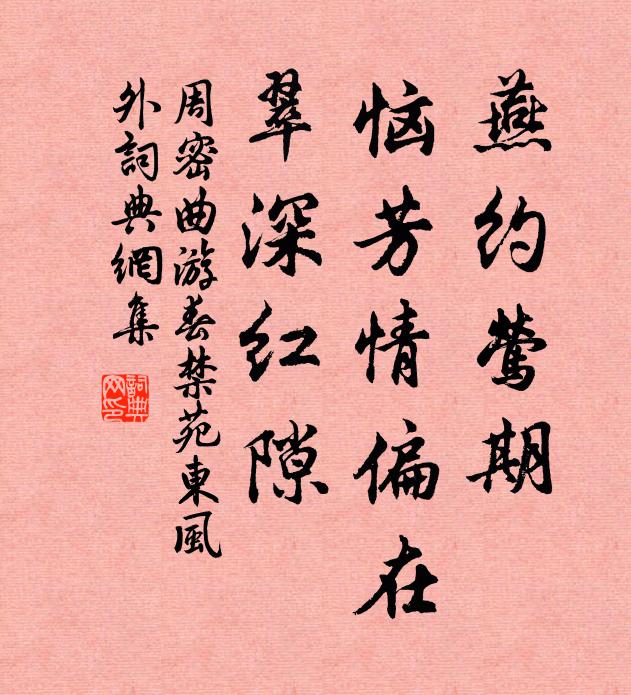 燕约莺期
恼芳情偏在
翠深红隙
周密曲游春禁苑東風
外詞典網集
詞典网印